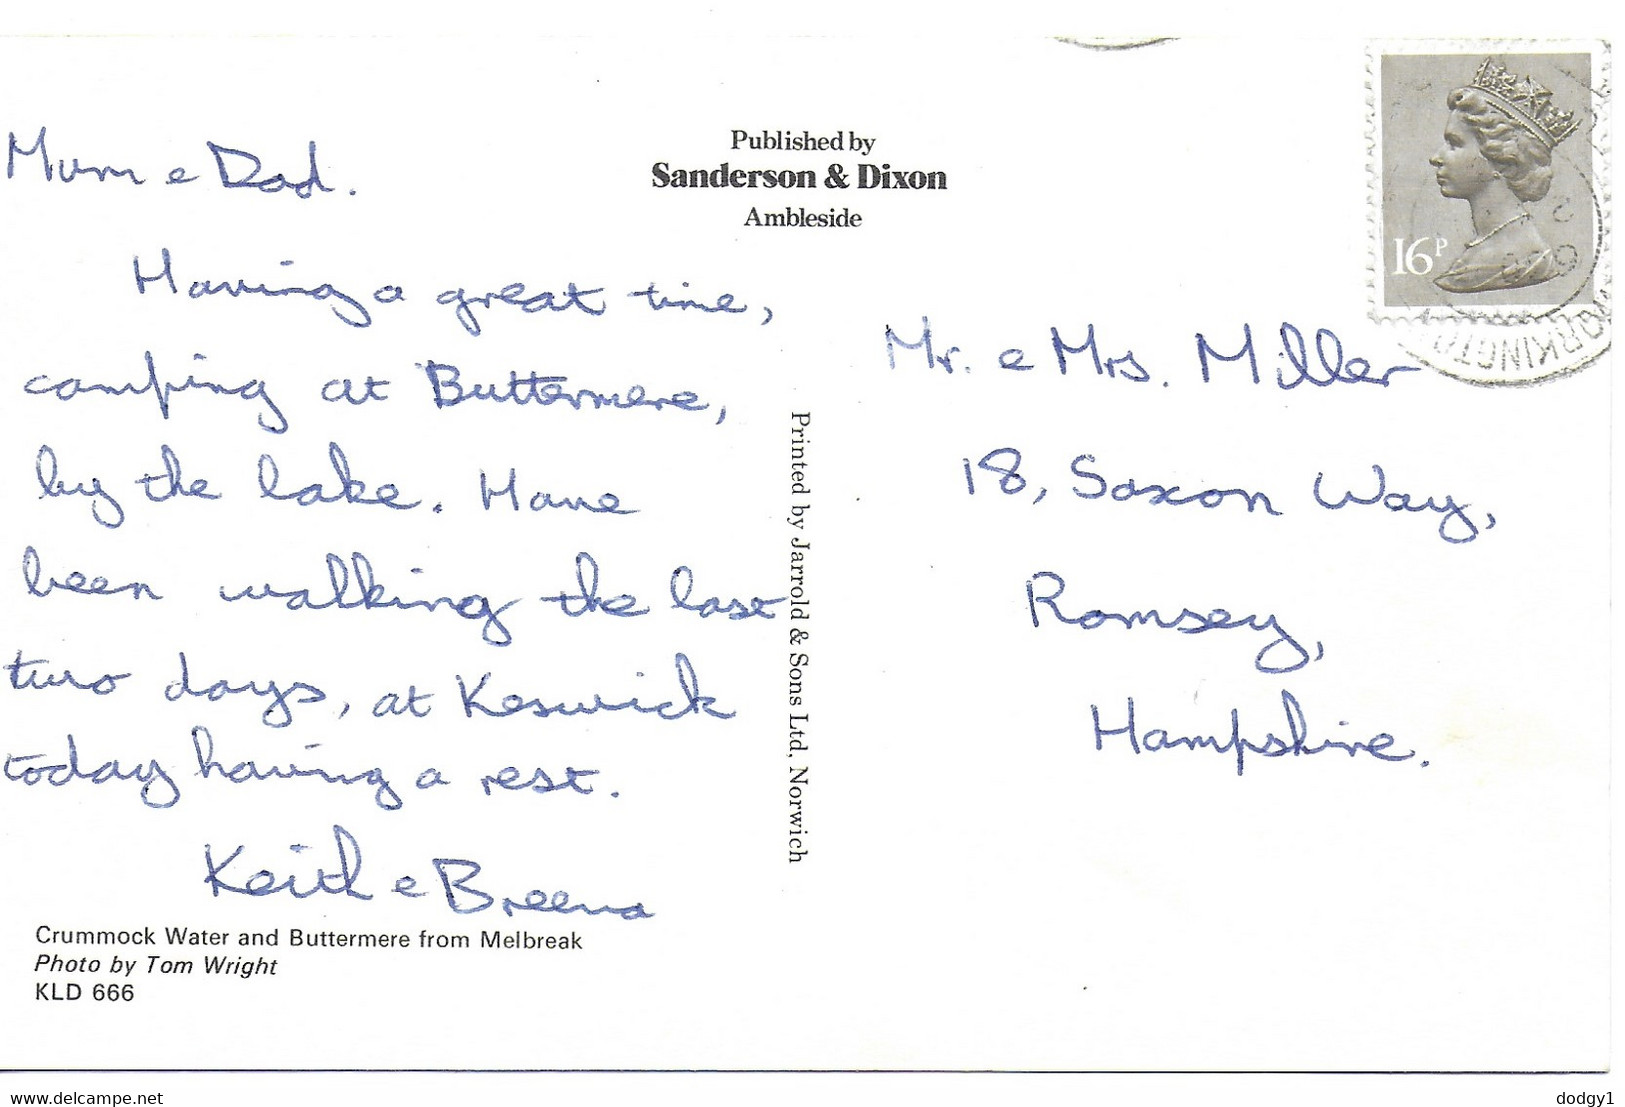 Mum e Dad.
Having a great time,
camping at Buttermere,
by the lake. Have
been walking the last
two days, at Keswick
today having a rest.
Keith e Breena
Crummock Water and Buttermere from Melbreak
Photo by Tom Wright
KLD 666
Published by
Sanderson & Dixon
Ambleside
Printed by Jarrold & Sons Ltd, Norwich
16P
Mr. e Mrs. Miller
18, Saxon Way,
Romsey,
Hampshire.
www.delcampe.net
dodgy1